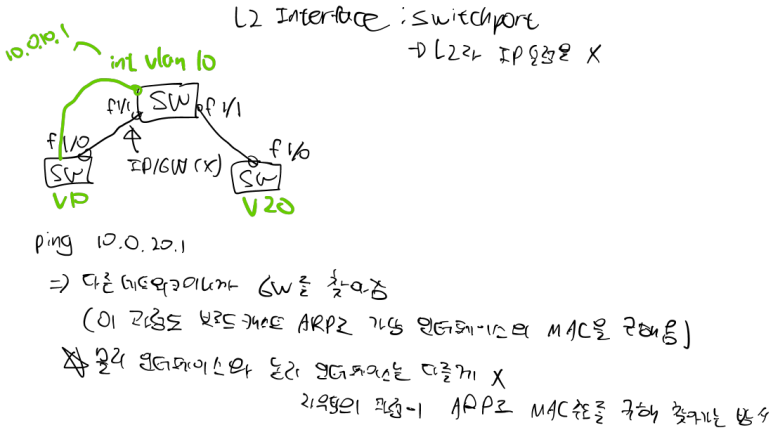 L2 Interface : switchport
→ L2라 IP설정은 X
10.0.10.1
int vlan 10
SW
f1/1
f1/1
f1/0
IP/GW (X)
f1/0
SW
SW
V10
V20
ping 10.0.20.1
⇒ 다른 네트워크이니까 GW를 찾아감
(이 과정도 브로드캐스트 ARP로 가상 인터페이스의 MAC을 구해옴)
☆ 물리 인터페이스와 논리 인터페이스는 다를게 X
라우팅의 과정이 ARP로 MAC주소를 구해 찾아가는 방식